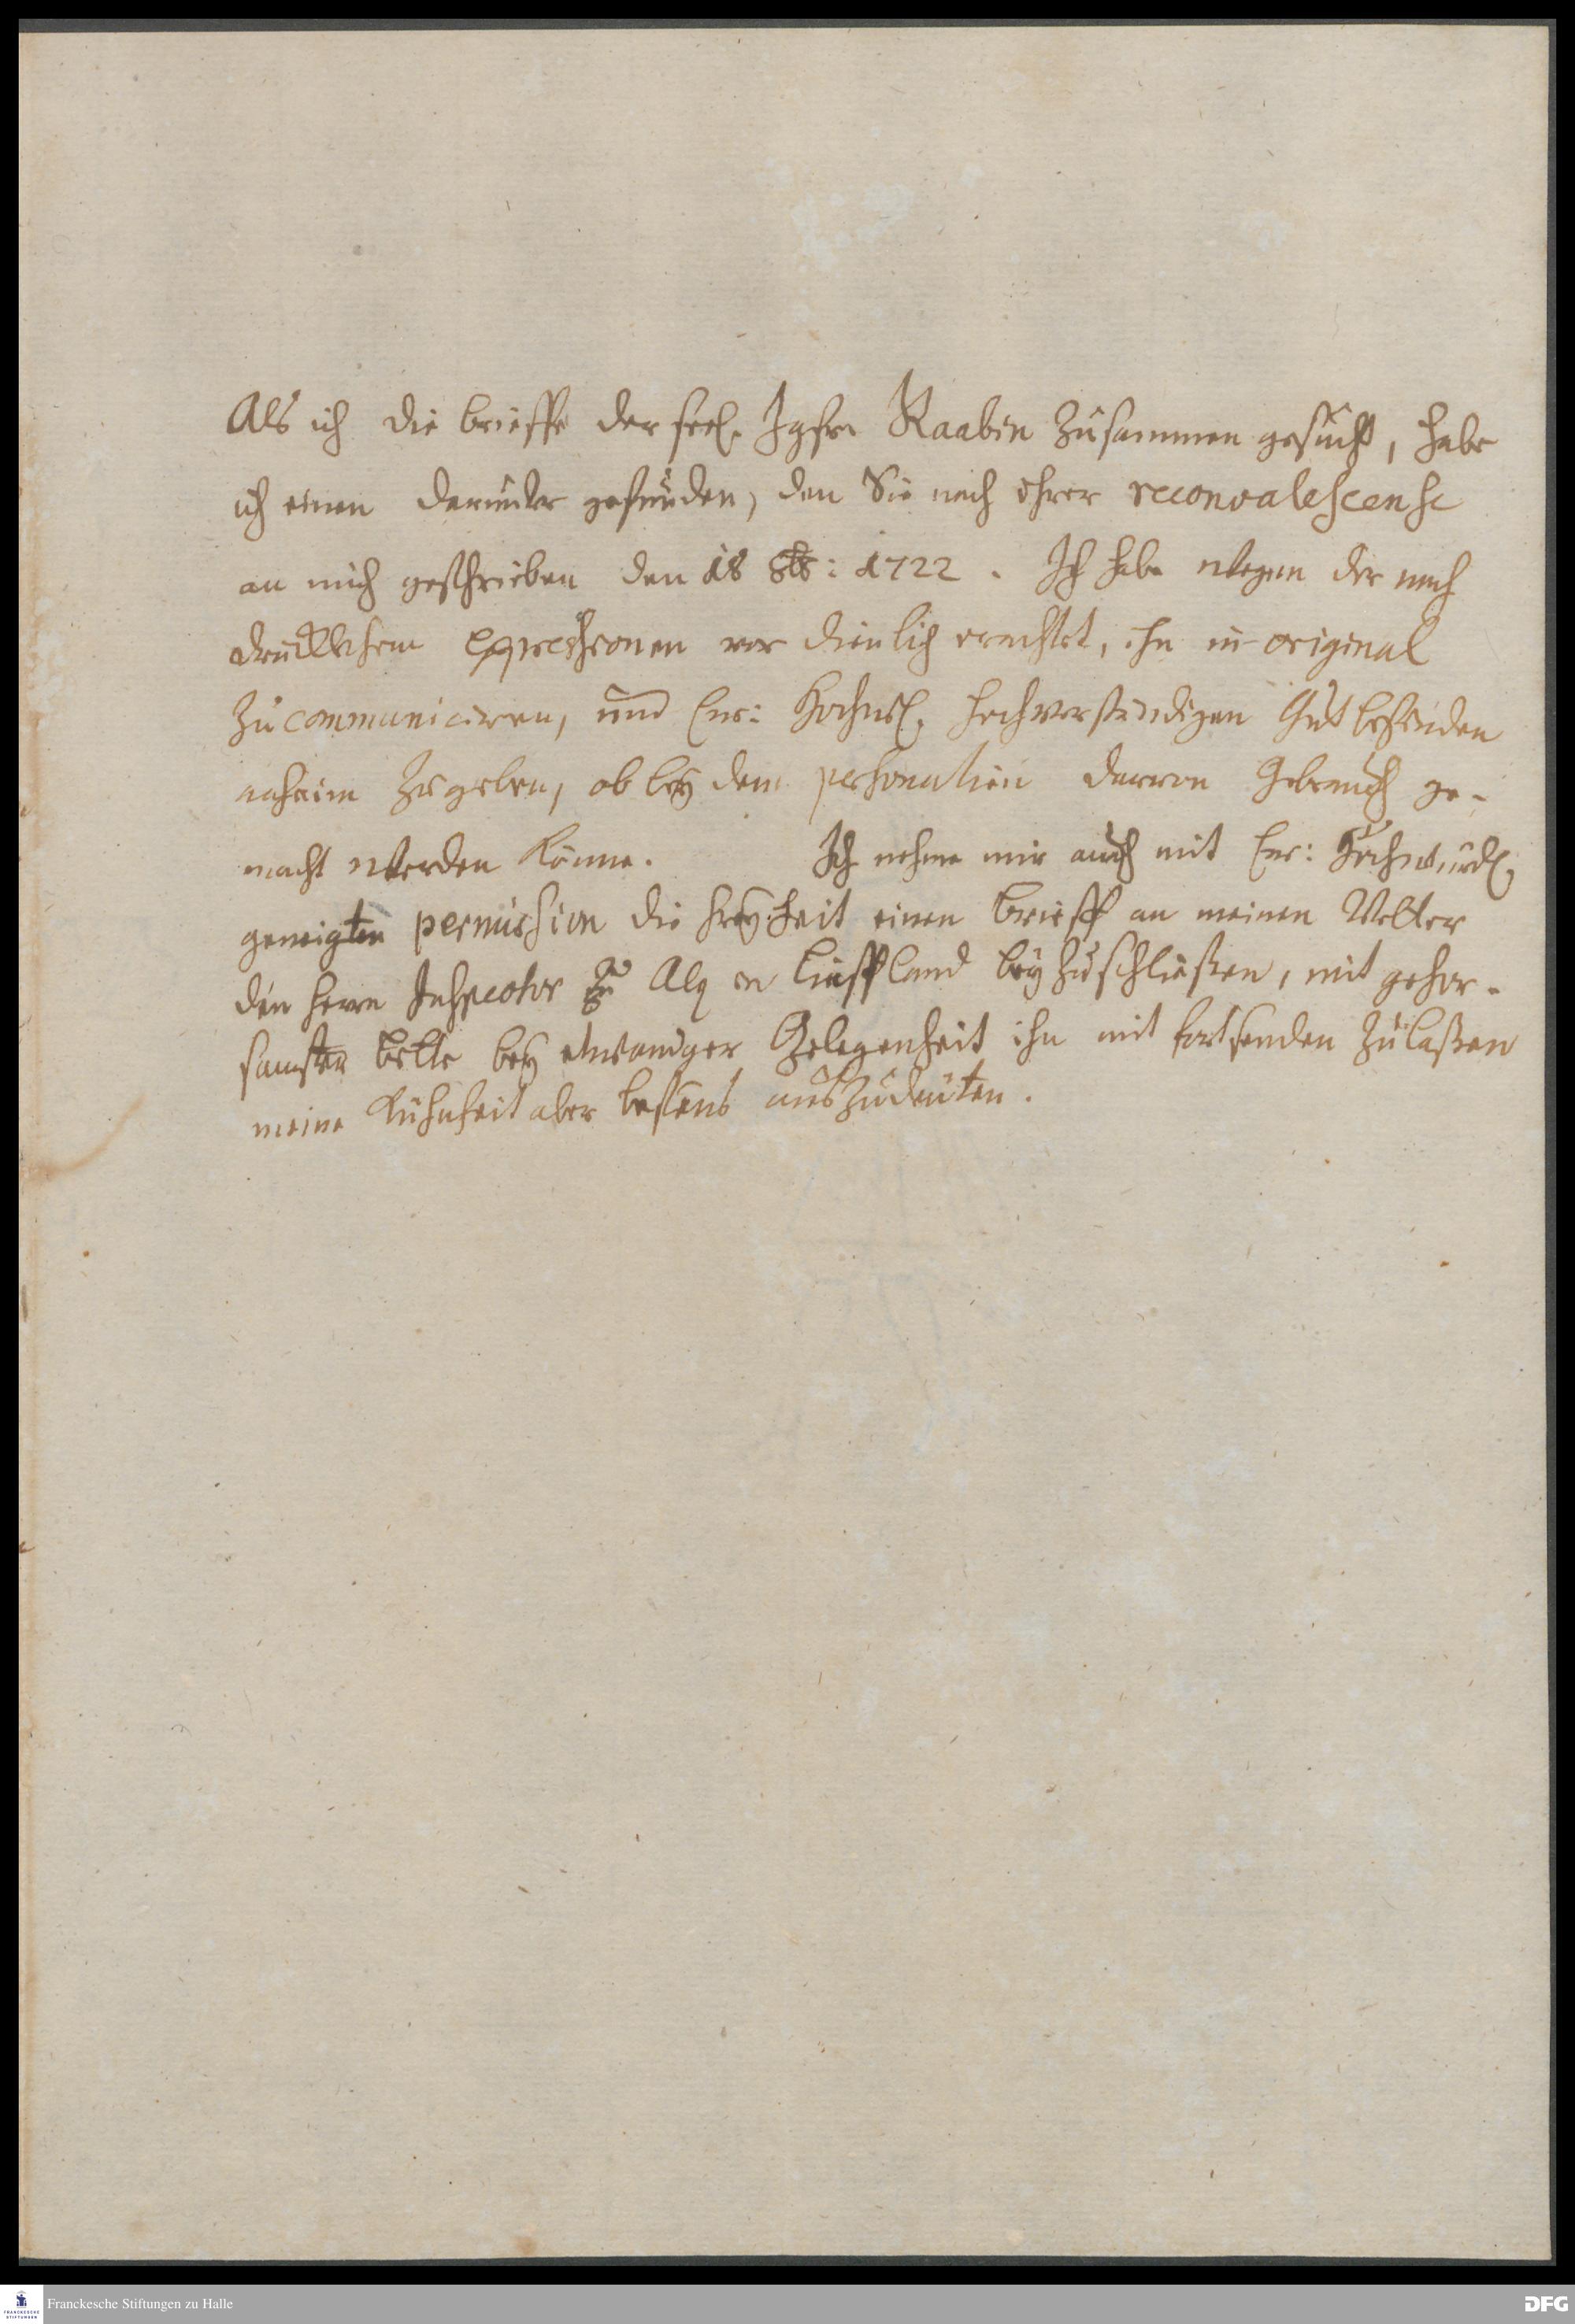 Als ich die brieffe der seel. Jgfr. Raabin zusammen gesucht, habe
ich einen darunter gefunden, den Sie nach ihrer reconvalescense
an mich geschrieben den 18 8br: 1722. Ich habe wegen der nach
drücklichen expressionen vor dienlich erachtet, ihn in original
zu communiciren, und Eur: Hochw. hochverständigen Gutbefinden
anheim zu geben, ob bey dem personalien darvon Gebrauch ge-
macht werden könne. Ich nehme mir auch mit Eur: Hochwürd.
geneigten permission die freyheit einen brieff an meinen Vetter
den Herrn Inspector zu in Lieffland beyzuschließen, mit gehor-
samster bitte bey etwaniger Gelegenheit ihn mit fortsenden zu laßen
meine Kühnheit aber bestens auszudeuten.
Franckesche Stiftungen zu Halle
DFG